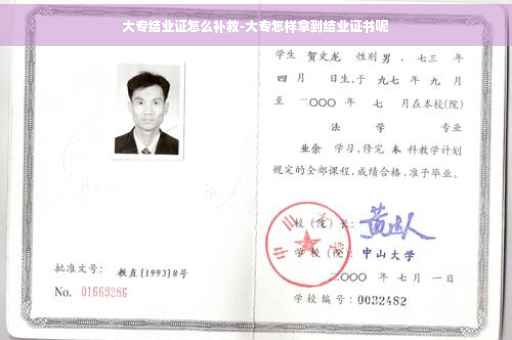 大专结业证怎么补救-大专怎样拿到结业证书呢
学生 贺文龙 性别 男 、七三 年
四 月 日生,于 九七 年 九 月
至 二〇〇〇 年 七 月在本校(院)
法 学 专业
业余 学习,修完 本 科教学计划
规定的全部课程,成绩合格,准予毕业。
校(院)长:
学校(院): 中山大学
二〇〇〇 年 七 月 一 日
批准文号: 教直[1993]8号
No. 01669286
学校编号: 0032482